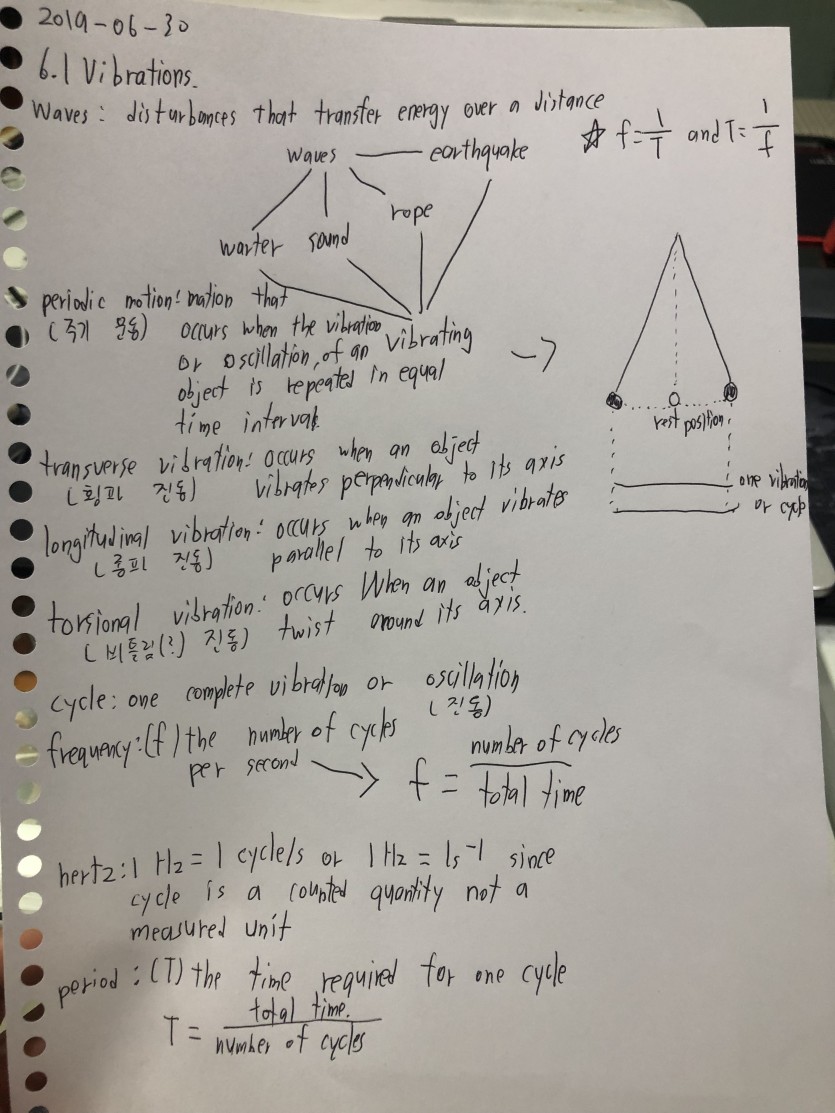 2019-06-30
6.1 Vibrations.
Waves: disturbances that transfer energy over a distance
☆ f=1/T and T=1/f
waves
earthquake
rope
warter
sound
vibrating
periodic motion: motion that
(주기 운동) occurs when the vibration
or oscillation, of an
object is repeated in equal
time interval.
→
rest position
one vibration
or cycle
transverse vibration: occurs when an object
(횡파 진동) vibrates perpendicular to its axis
longitudinal vibration: occurs when an object vibrates
(종파 진동) parallel to its axis
torsional vibration: occurs When an object
(비틀림(?) 진동) twist around its axis.
cycle: one complete vibration or oscillation
(진동)
frequency:(f) the number of cycles
per second → f = number of cycles / total time
hertz: 1 Hz = 1 cycle/s or 1 Hz = 1s⁻¹ since
cycle is a counted quantity not a
measured unit
period: (T) the time required for one cycle
T = total time. / number of cycles